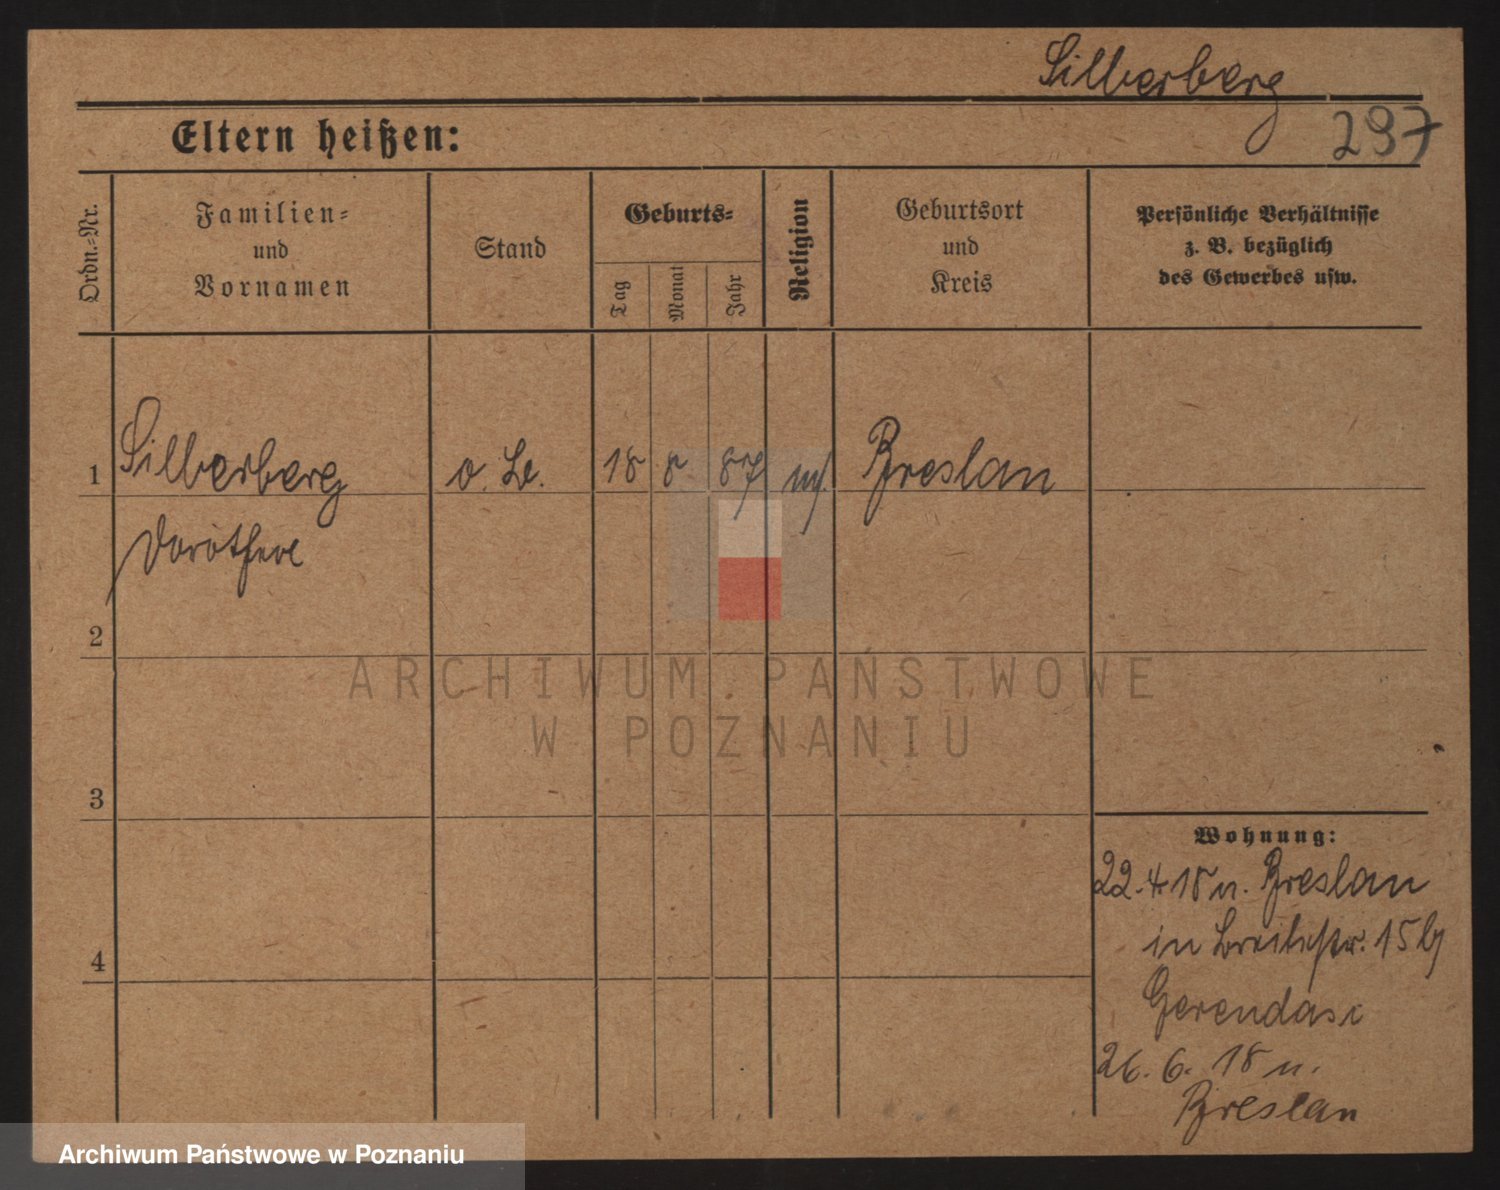 Silberberg
Eltern heißen:
297
Ordn.-Nr.
Familien-
und
Vornamen
Stand
Geburts-
Tag
Monat
Jahr
Religion
Geburtsort
und
Kreis
Persönliche Verhältnisse
z. B. bezüglich
des Gewerbes usw.
1 Silberberg o. 18 8 87 Breslau
Dorothea
2
3
4
ARCHIWUM PAŃSTWOWE
W POZNANIU
Wohnung:
22.4.18 n. Breslau
in Breitestr. 15 b/
Gerendasi
26.6.18 n.
Breslau
Archiwum Państwowe w Poznaniu